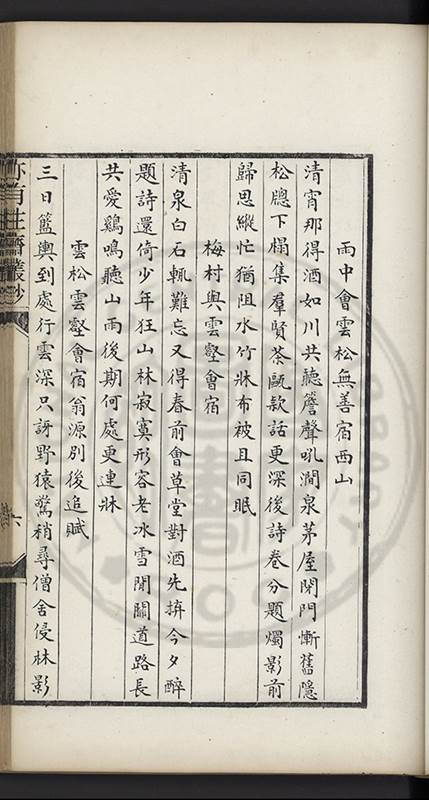 雨中會雲松無善宿西山
清宵那得酒如川共聽簷聲吼澗泉茅屋閉門慚舊隱
松牕下榻集羣賢茶甌款話更深後詩卷分題燭影前
歸思縱忙猶阻水竹牀布被且同眠
梅村與雲壑會宿
清泉白石輒難忘又得春前會草堂對酒先拚今夕醉
題詩還倚少年狂山林寂寞形容老冰雪間關道路長
共愛鷄鳴聽山雨後期何處更連牀
雲松雲壑會宿翁源別後追賦
三日籃輿到處行雲深只訝野猿驚稍尋僧舍侵林影
亦有生齋叢鈔
六